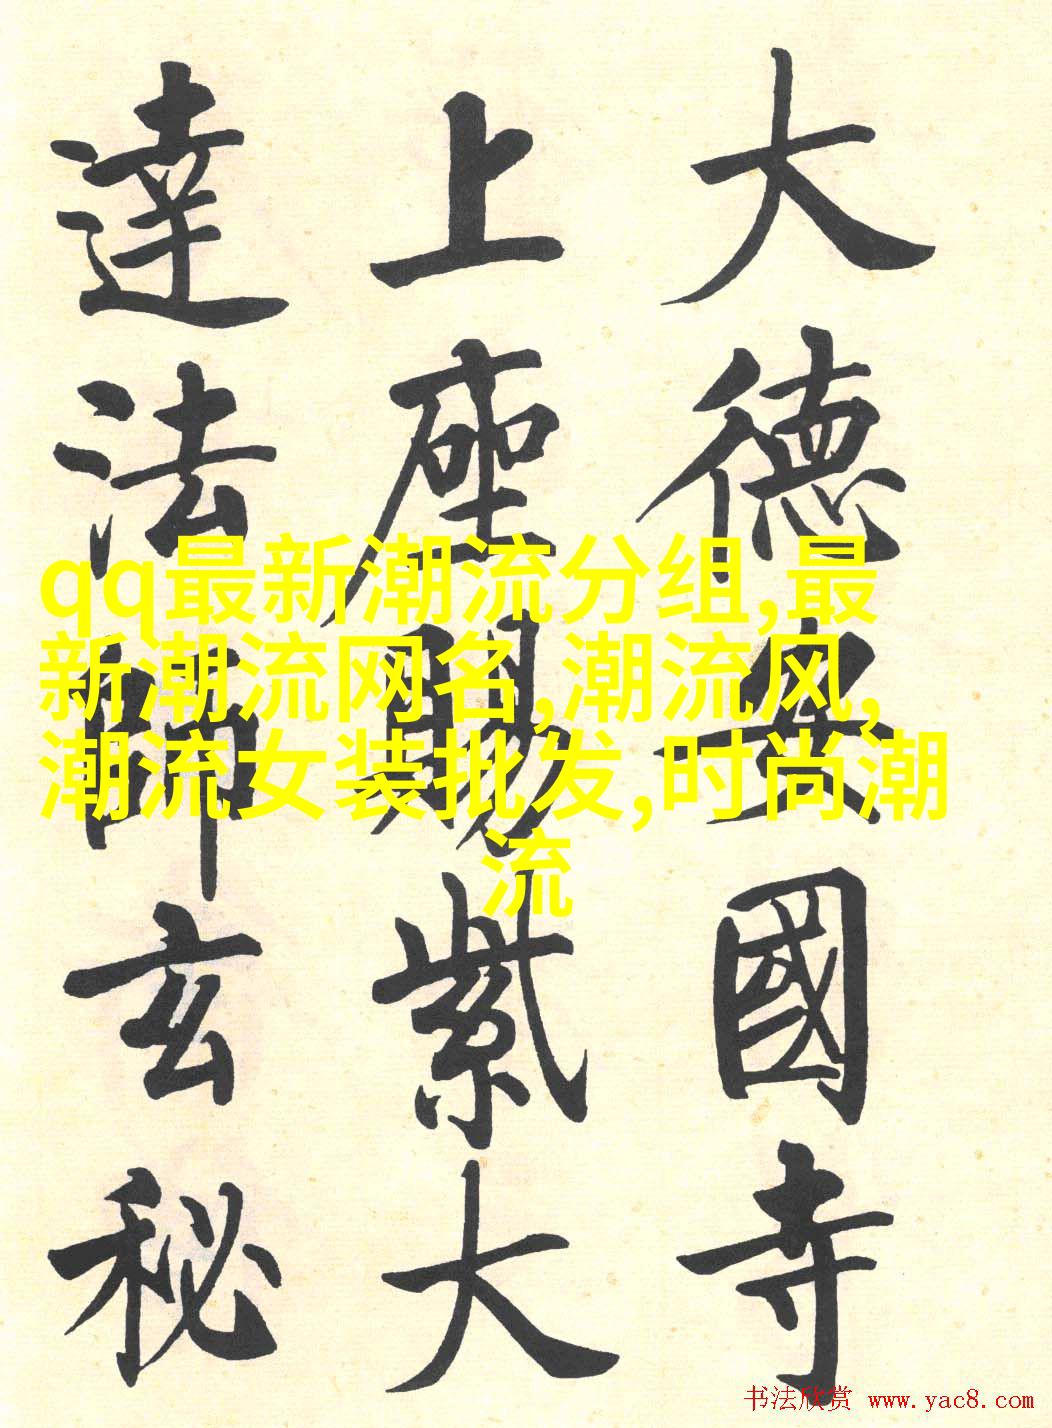 大德安國寺
上座賜紫大
達法師玄秘
qq最新潮流分组,最
新潮流网名,潮流风,
潮流女装批发,时尚潮
流
书法欣赏 www.yac8.com